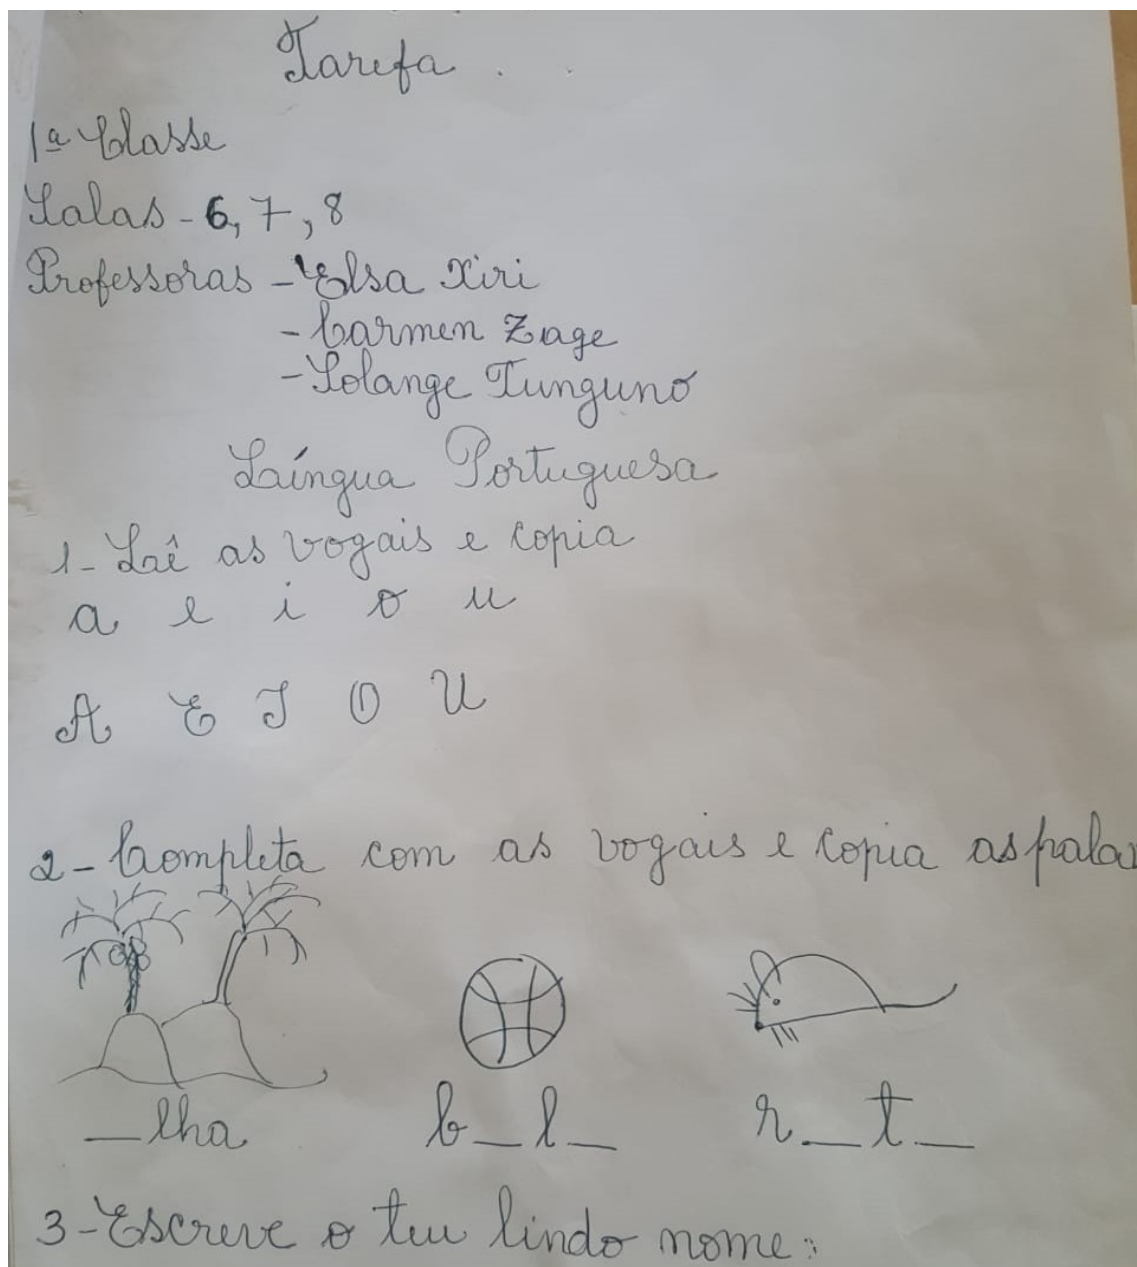 Tarefa
1ª Classe
Salas - 6, 7, 8
Professoras - Elsa Xiri
- Carmen Zage
- Solange Tunguno
Língua Portuguesa
1- Lê as vogais e copia
a e i o u
A E I O U
2- Completa com as vogais e copia as pala
_lha b_l_ r_t_
3- Escreve o teu lindo nome: